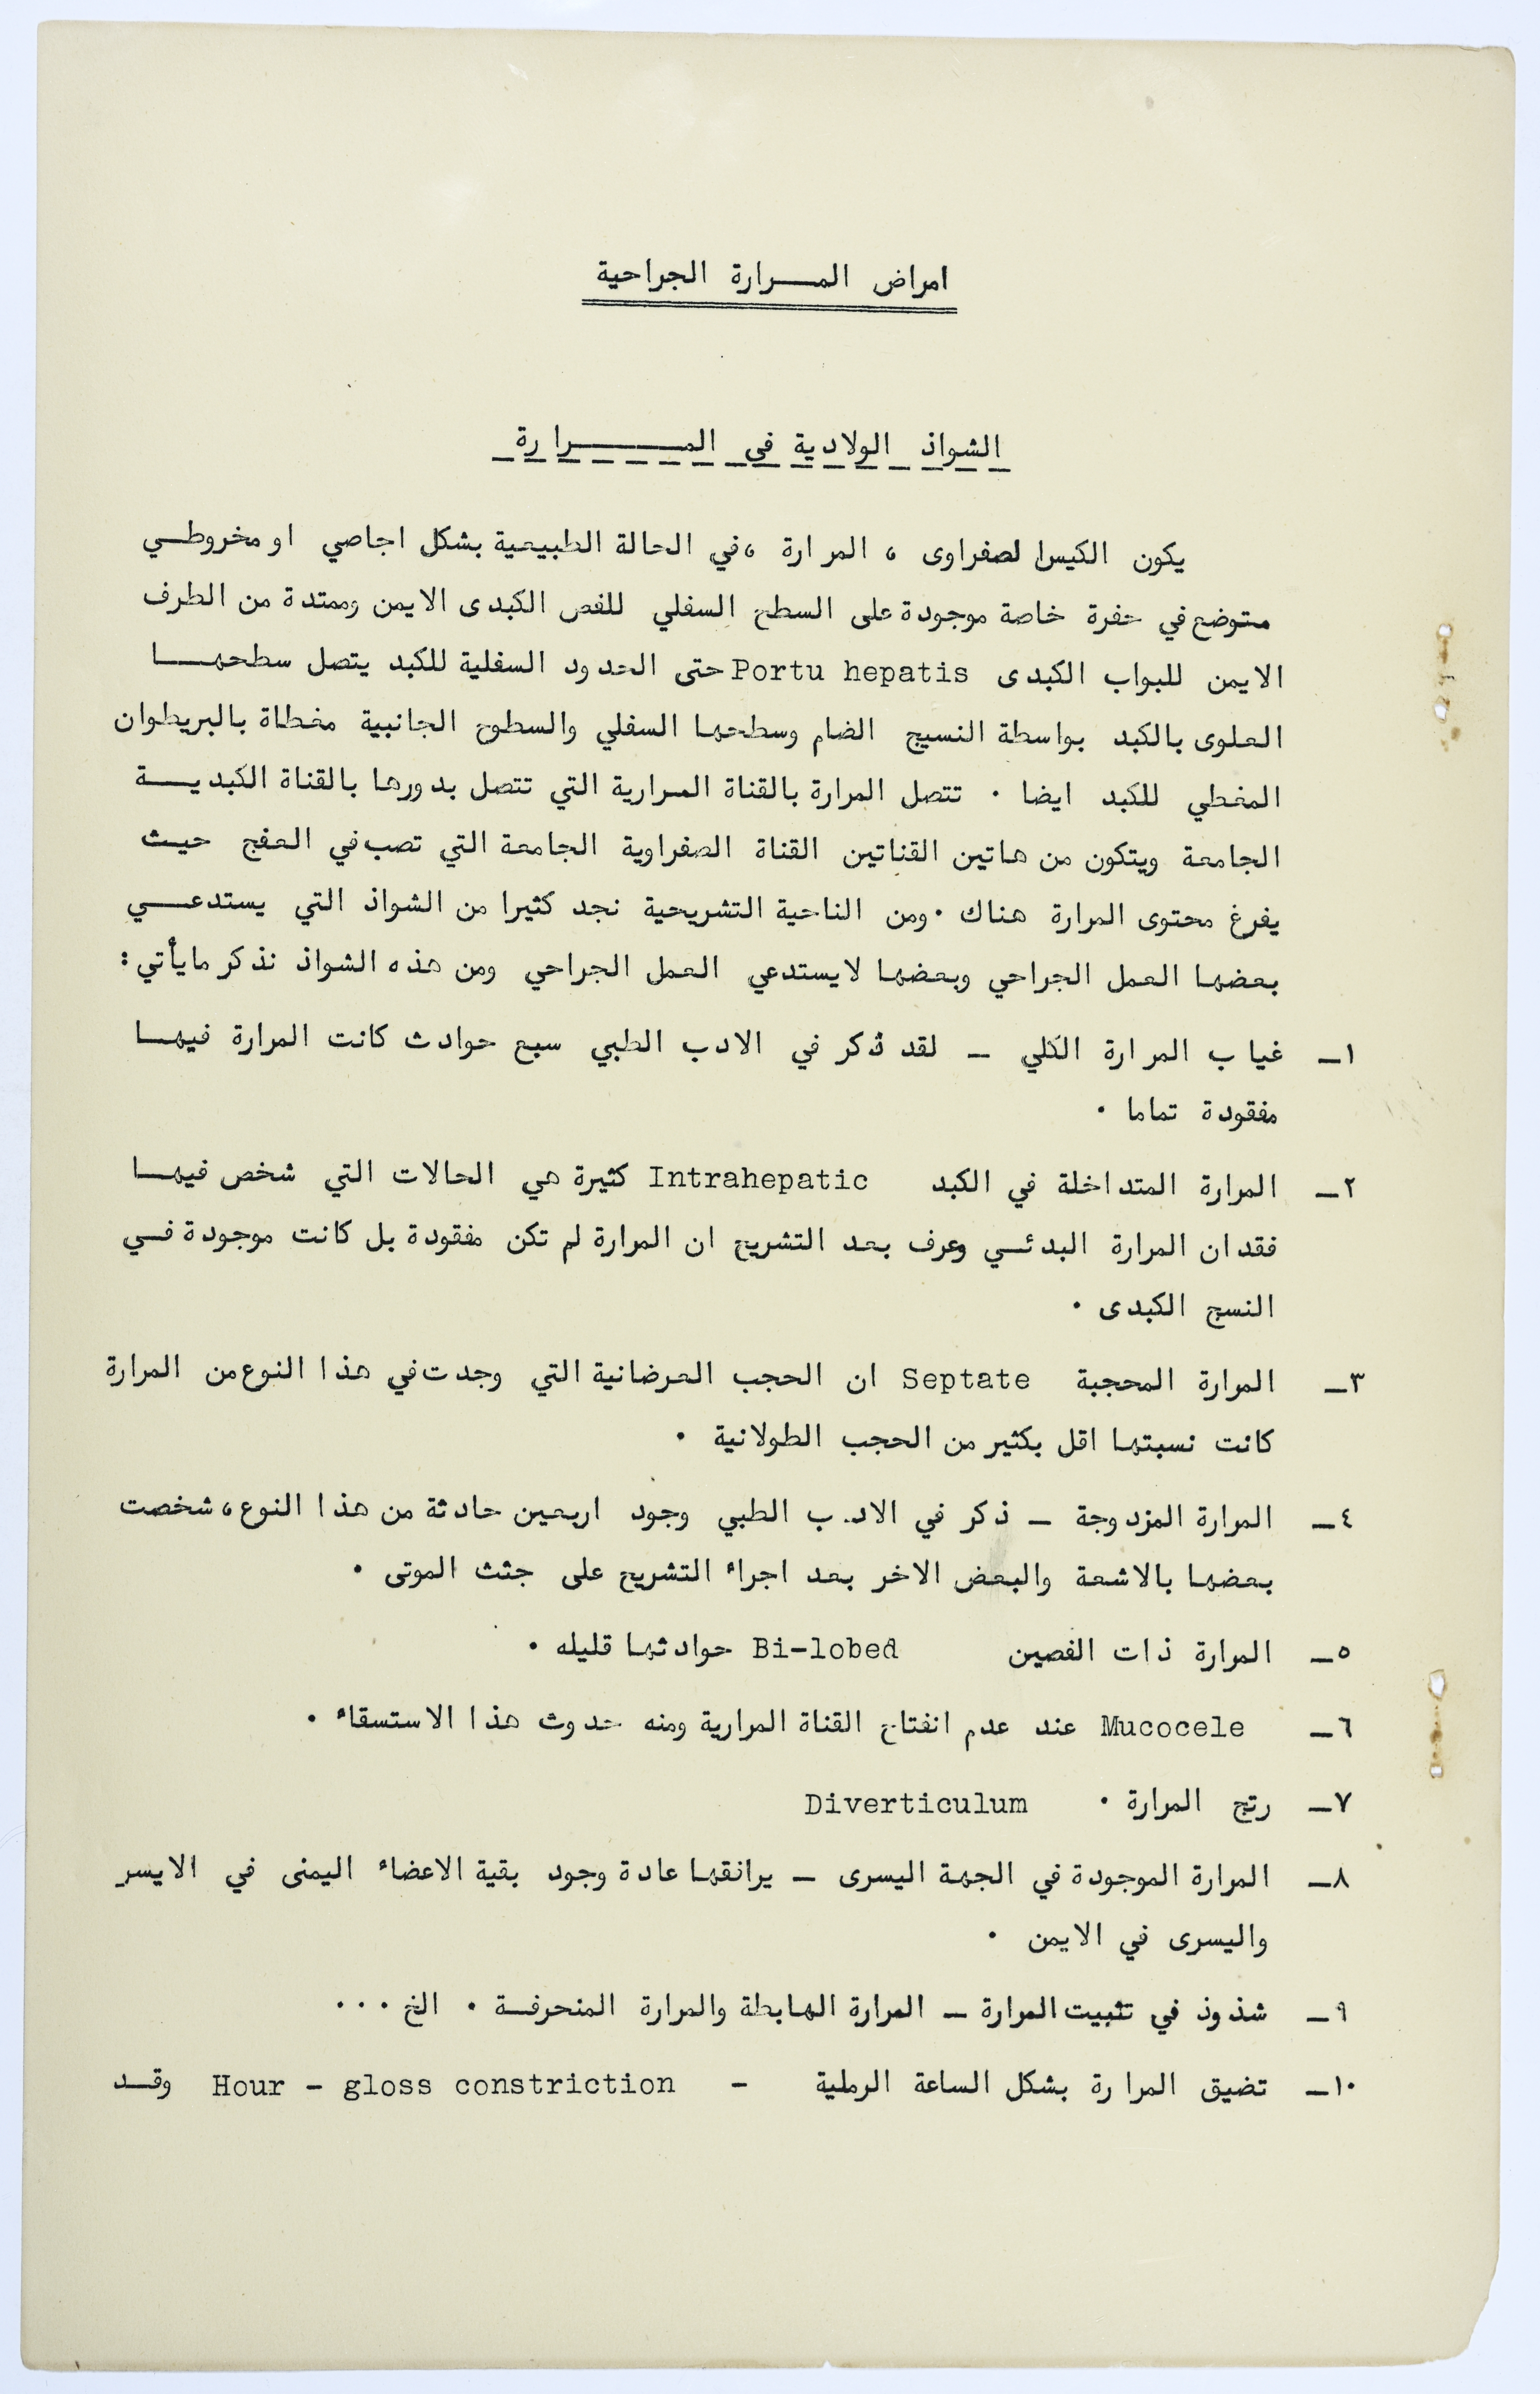 امراض المـــرارة الجراحية
الشواذ الولادية في المـــــــرارة
يكون الكيس الصفراوى ، المرارة ،في الحالة الطبيعية بشكل اجاصي او مخروطــي
متوضع في حفرة خاصة موجودة على السطح السفلي للفص الكبدى الايمن وممتدة من الطرف
الايمن للبواب الكبدى Portu hepatis حتى الحدود السفلية للكبد يتصل سطحهـــا
العلوى بالكبد بواسطة النسيج الضام وسطحها السفلي والسطوح الجانبية مغطاة بالبريطوان
المغطي للكبد ايضا . تتصل المرارة بالقناة المرارية التي تتصل بدورها بالقناة الكبديــة
الجامعة ويتكون من هاتين القناتين القناة الصفراوية الجامعة التي تصب في العفج حيث
يفرغ محتوى المرارة هناك .ومن الناحية التشريحية نجد كثيرا من الشواذ التي يستدعــي
بعضها العمل الجراحي وبعضها لايستدعي العمل الجراحي ومن هذه الشواذ نذكر مايأتي :
١ـ غياب المرارة الكلي ـ لقد ذكر في الادب الطبي سبع حوادث كانت المرارة فيهــا
مفقودة تماما .
٢ـ المرارة المتداخلة في الكبد Intrahepatic كثيرة هي الحالات التي شخص فيهــا
فقدان المرارة البدئـي وعرف بعد التشريح ان المرارة لم تكن مفقودة بل كانت موجودة فـي
النسج الكبدى .
٣ـ المرارة المحجبة Septate ان الحجب العرضانية التي وجدت في هذا النوع من المرارة
كانت نسبتها اقل بكثير من الحجب الطولانية .
٤ـ المرارة المزدوجة ـ ذكر في الادب الطبي وجود اربعين حادثة من هذا النوع ، شخصت
بعضها بالاشعة والبعض الاخر بعد اجراء التشريح على جثث الموتى .
٥ـ المرارة ذات الفصين Bi-lobed حوادثها قليله .
٦ـ Mucocele عند عدم انفتاح القناة المرارية ومنه حدوث هذا الاستسقاء .
٧ـ رتج المرارة . Diverticulum
٨ـ المرارة الموجودة في الجهة اليسرى ـ يرانقها عادة وجود بقية الاعضاء اليمنى في الايسر
واليسرى في الايمن .
٩ـ شذوذ في تثبيت المرارة ـ المرارة الهابطة والمرارة المنحرفـة . الخ ...
١٠ـ تضيق المرارة بشكل الساعة الرملية - Hour - gloss constriction وقـد